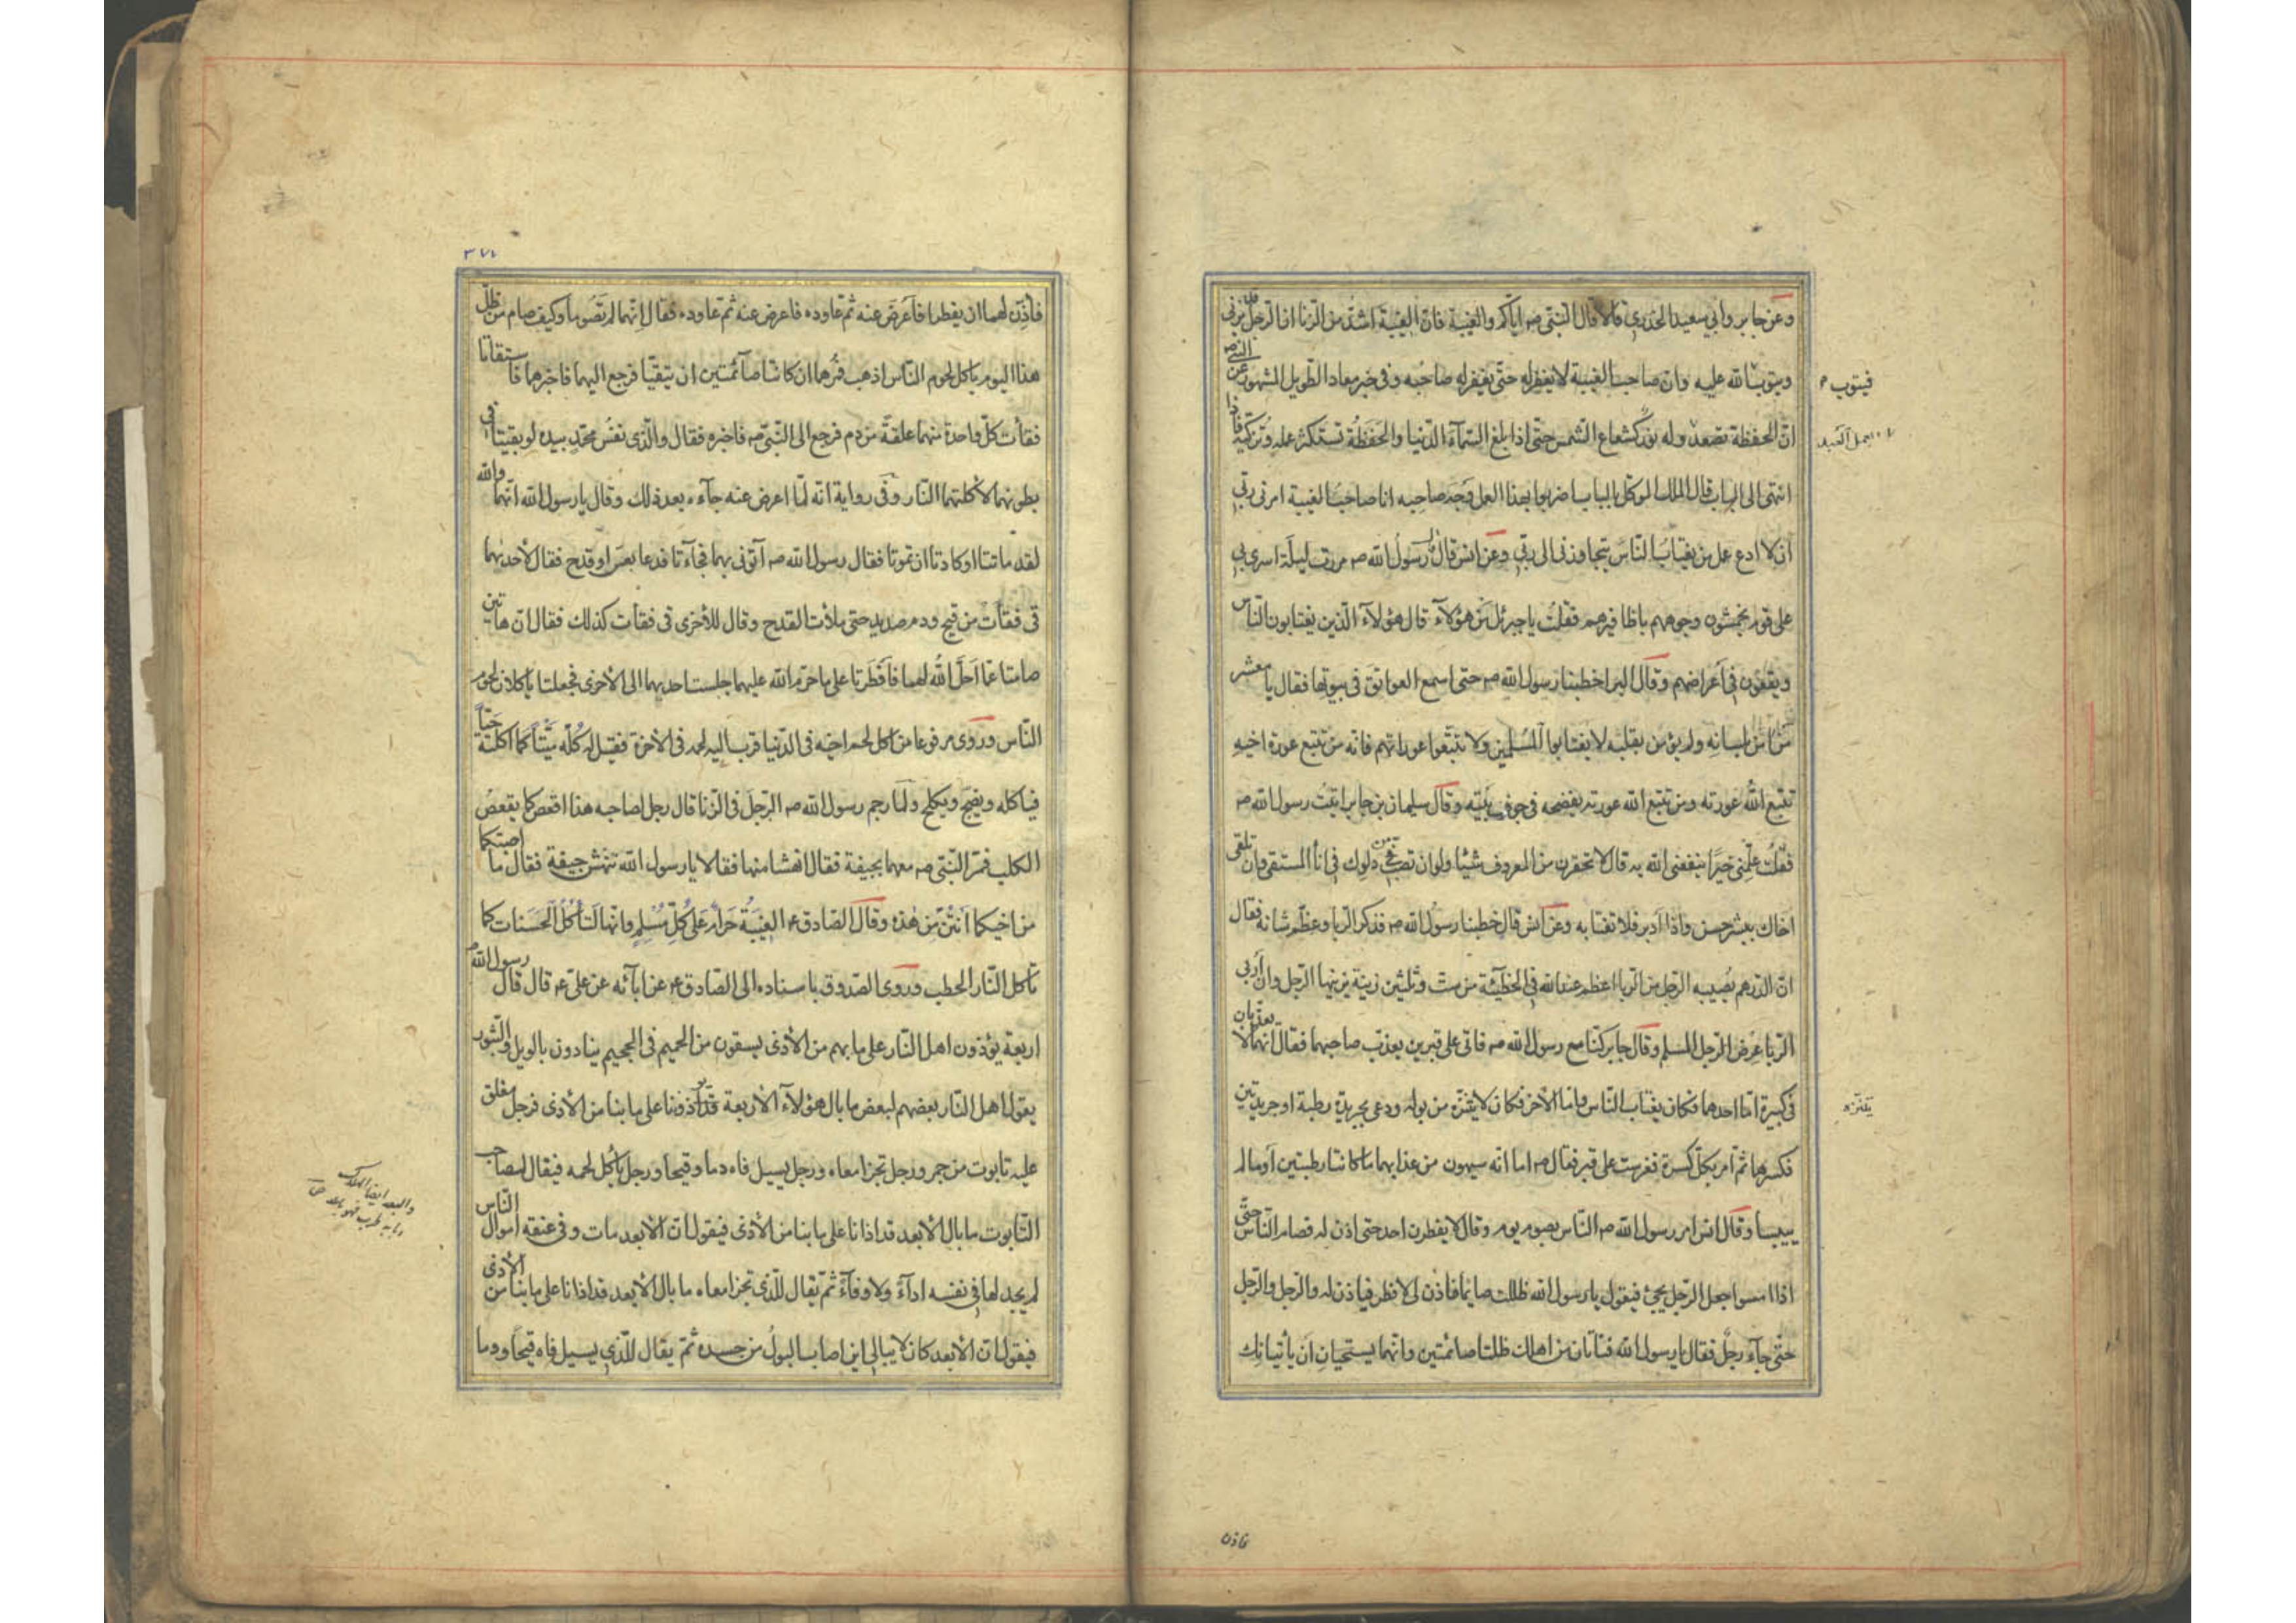 وعن جابر وأبي سعيد الخدري قالا قال النبي صه اياكم والغيبة فان الغيبة اشد من الزنا ان الرجل قد يزني
ويتوب الله عليه وان صاحب الغيبة لا يغفر له حتى يغفر له صاحبه وفي خبر معاذ الطويل المشهور عن النبي صه
ان الحفظة تصعد وله نور كشعاع الشمس حتى اذا بلغ السمآء الدنيا والحفظة تستكثر عمله وتزكيه فاذا
انتهى الى الباب قال الملك الموكل بالباب اضربوا بهذا العمل وجه صاحبه انا صاحب الغيبة امرني ربي
ان لا ادع عمل من يغتاب الناس يتجاوزني الى ربي وعن انس قال قال رسول الله صه مررت ليلة اسري بي
على قوم يخمشون وجوههم باظافيرهم فقلت يا جبرئل من هؤلآء قال هؤلآء الذين يغتابون الناس
ويقعون في أعراضهم وقال البرا خطبنا رسول الله صه حتى اسمع العواتق في بيوتها فقال يا معشر
من امن بلسانه ولم يؤمن بقلبه لا تغتابوا المسلمين ولا تتبعوا عوراتهم فانه من تتبع عورة اخيه
تتبع الله عورته ومن تتبع الله عورته يفضحه في جوف بيته وقال سليمان بن جابر اتيت رسول الله صه
فقلت علمني خيرا ينفعني الله به قال لا تحقرن من المعروف شيئا ولو ان تصب من دلوك في انأ المستقي وان تلقى
اخاك ببشر حسن واذا أدبر فلا تغتابه وعن انس قال خطبنا رسول الله صه فذكر الربا وعظم شانه فقال
ان الدرهم يصيبه الرجل من الربا اعظم عند الله في الخطيئة من ست وثلثين زنية يزنيها الرجل وان أربى
الربا عرض الرجل المسلم وقال جابر كنا مع رسول الله صه فاتى على قبرين يعذب صاحبهما فقال انهما لا يعذبان
في كبيرة اما احدهما فكان يغتاب الناس واما الأخر فكان لا يتنزه من بوله ودعى بجريدة رطبة او جريدتين
فكسرها ثم أمر بكل كسرة فغرست على قبر فقال صه اما انه سيهون من عذابهما ما كانتا رطبتين أو ما لم
ييبسا وقال انس امر رسول الله صه الناس بصوم يوم وقال لا يفطرن احد حتى اذن له فصام الناس حتى
اذا امسوا جعل الرجل يجئ فيقول يا رسول الله ظللت صايما فاذن لي لافطر فياذن له والرجل والرجل
حتى جآء رجل فقال يا رسول الله فتاتان من اهلك ظلتا صائمتين وانهما يستحيان أن يأتيانك
فيتوب
بعمل العبد
يتنزه
فاذن
٣٧٧
فأذن لهما ان يفطرا فأعرض عنه ثم عاوده فاعرض عنه ثم عاوده فقال انهما لم تصوما وكيف صام من ظل
هذا اليوم ياكل لحوم الناس اذهب فمرهما ان كانتا صآئمتين ان يتقيا فرجع اليهما فاخبرهما فاستقاتا
فقأت كل واحدة منهما علقة من دم فرجع الى النبي صه فاخبره فقال والذي نفس محمد بيده لو بقيتا في
بطونهما لأكلتهما النار وفي رواية انه لما اعرض عنه جآءه بعد ذلك وقال يا رسول الله انهما والله
لقد ماتتا او كادتا ان تموتا فقال رسول الله صه آتوني بهما فجآءتا فدعا بعس او قدح فقال لأحدهما
قى فقأت من قيح ودم صديد حتى ملأت القدح وقال للأخرى قى فقأت كذلك فقال ان هاتين
صامتا عما أحل الله لهما فأفطرتا على ما حرم الله عليهما جلست احديهما الى الأخرى فجعلتا ياكلان لحوم
الناس وروى مرفوعا من اكل لحم اخيه في الدنيا قرب اليه لحمه في الأخرة فقيل له كله ميتا كما اكلته حيا
فياكله ويضج ويكلح ولما رجم رسول الله صه الرجل في الزنا قال رجل لصاحبه هذا اقعص كما يقعص
الكلب فمر النبي صه معهما بجيفة فقال انهشا منها فقالا يا رسول الله ننهش جيفة فقال ما اصبتما
من اخيكما أنتن من هذه وقال الصادق ع الغيبة حرام على كل مسلم وانها لتأكل الحسنات كما
تأكل النار الحطب وروى الصدوق باسناده الى الصادق ع عن ابآئه عن علي ع قال قال رسول الله ص
اربعة يؤذون اهل النار على ما بهم من الأذى يسقون من الحميم في الجحيم ينادون بالويل والثبور
يقول اهل النار بعضهم لبعض ما بال هؤلآء الأربعة قد آذونا على ما بنا من الأذى فرجل معلق
عليه تابوت من جمر ورجل تجر امعاه ورجل يسيل فاه دما وقيحا ورجل يأكل لحمه فيقال لصاحب
التابوت ما بال الأبعد قد اذانا على ما بنا من الأذى فيقول ان الأبعد مات وفي عنقه اموال الناس
لم يجد لها في نفسه ادآء ولا وفآء ثم يقال للذي تجر امعاه ما بال الأبعد قد اذانا على ما بنا من الأذى
فيقول ان الأبعد كان لا يبالي اين اصاب البول من جسده ثم يقال للذي يسيل فاه قيحا ودما